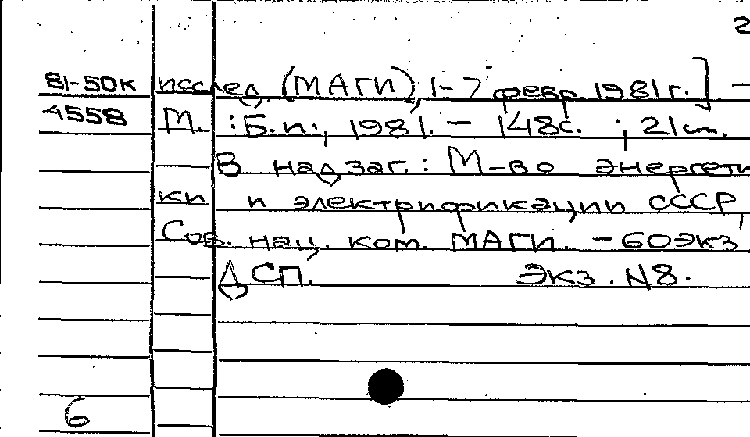 2
81-50к исслед. (МАГИ), 1-7 февр. 1981г.] -
4558 М.: Б.и., 1981. - 148с. ; 21см.
В надзаг.: М-во энергети
ки и электрификации СССР,
Сов. нац. ком. МАГИ. - 60экз
ДСП. Экз. N8.
6